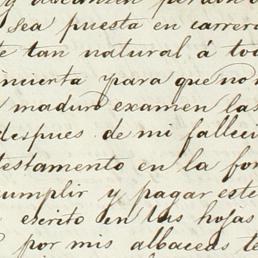 y alcancen perdon
sea puesta en carrera
te tan natural á tod
incierta y para que no m
maduro examen las
despues de mi falleci
testamento en la for
cumplir y pagar este
escrito en las hojas
por mis albaceas te